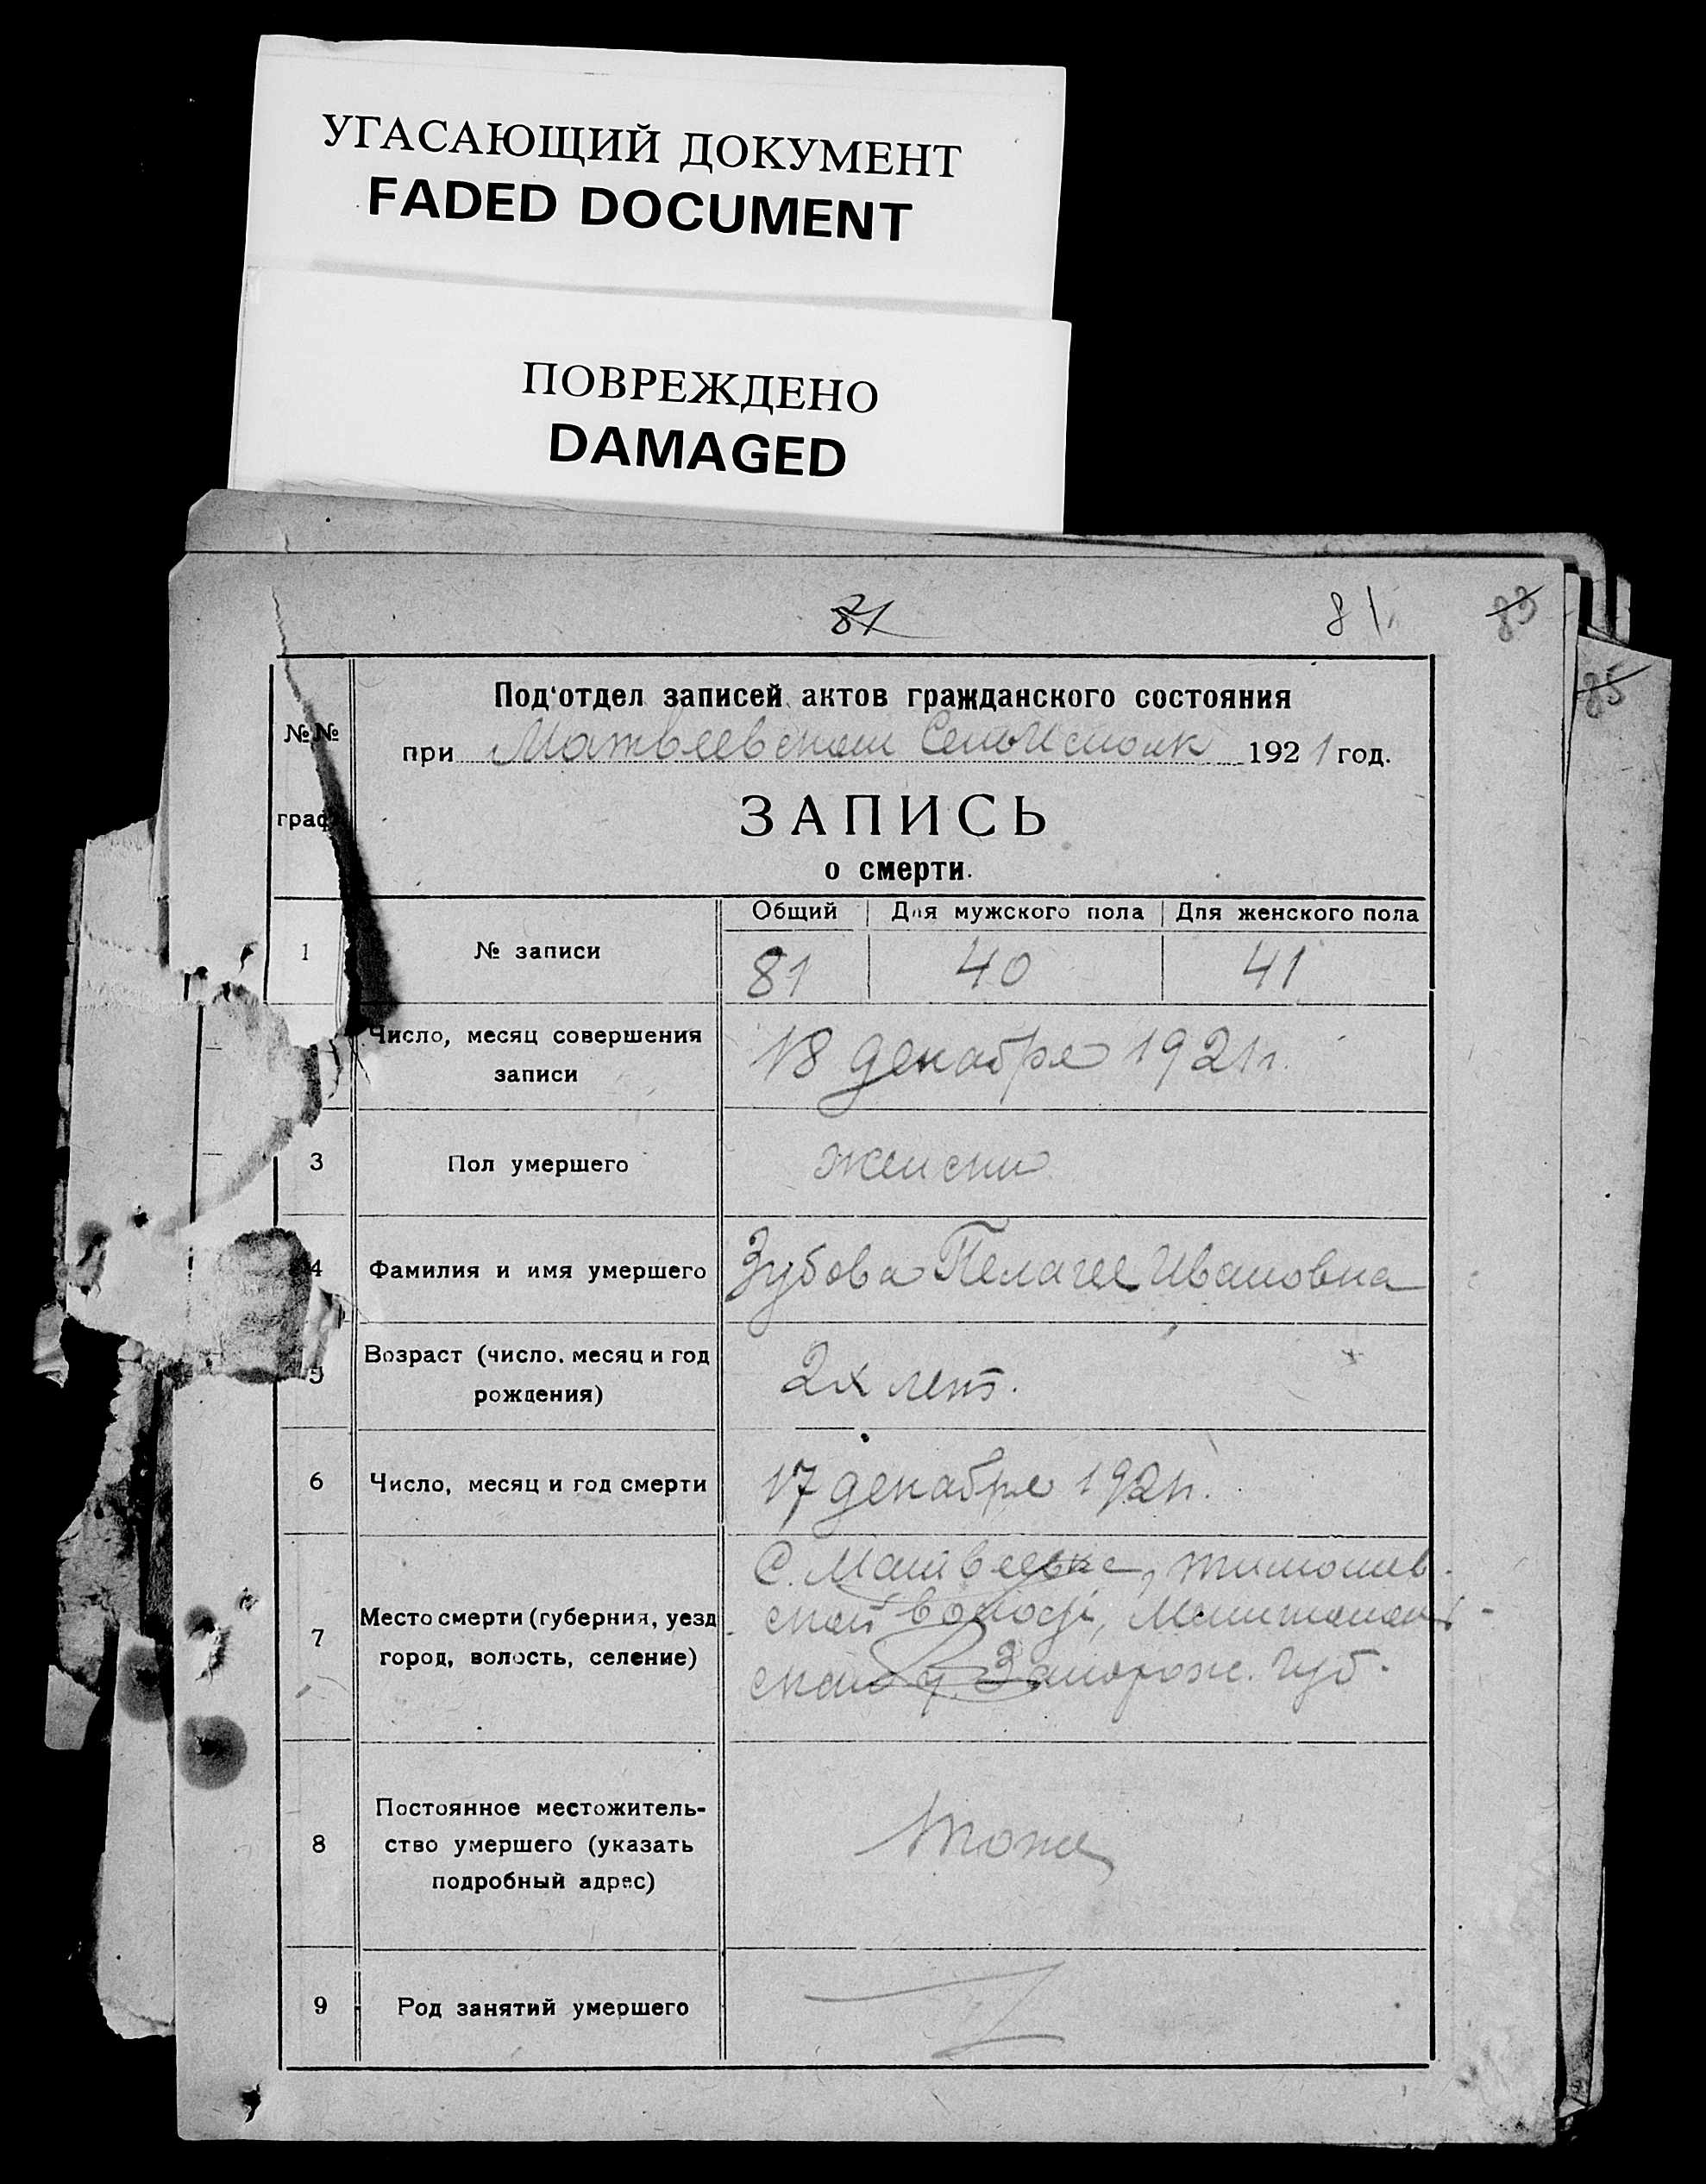 УГАСАЮЩИЙ ДОКУМЕНТ
FADED DOCUMENT
ПОВРЕЖДЕНО
DAMAGED
81 81 83
85
Под‘отдел записей актов гражданского состояния
№№
при Матвеевском 1921 год.
граф
ЗАПИСЬ
о смерти.
Общий Для мужского пола Для женского пола
1 № записи 81 40 41
Число, месяц совершения
записи
18 декабря 1921г.
3 Пол умершего женски
4 Фамилия и имя умершего Зубова Пелагее Ивановна
5 Возраст (число, месяц и год
рождения)
2х лет.
6 Число, месяц и год смерти 17 декабря 1921г.
7 Место смерти (губерния, уезд
город, волость, селение)
С. Матвеевке,
ской волости,
ской у. Запорож. губ.
8 Постоянное местожитель-
ство умершего (указать
подробный адрес)
тоже
9 Род занятий умершего